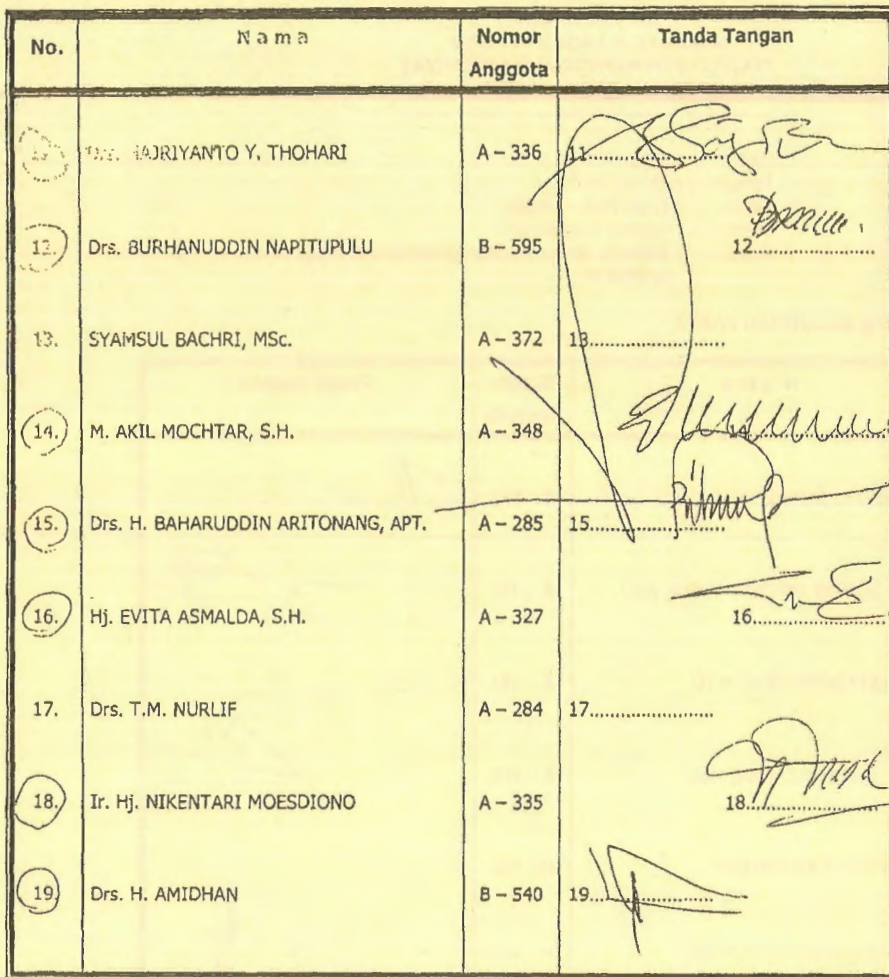 No. Nama Nomor Anggota Tanda Tangan
HAJRIYANTO Y. THOHARI A – 336 11.......................
12. Drs. BURHANUDDIN NAPITUPULU B – 595 12.......................
13. SYAMSUL BACHRI, MSc. A – 372 13.......................
14. M. AKIL MOCHTAR, S.H. A – 348 14.......................
15. Drs. H. BAHARUDDIN ARITONANG, APT. A – 285 15.......................
16. Hj. EVITA ASMALDA, S.H. A – 327 16.......................
17. Drs. T.M. NURLIF A – 284 17.......................
18. Ir. Hj. NIKENTARI MOESDIONO A – 335 18.......................
19. Drs. H. AMIDHAN B – 540 19.......................